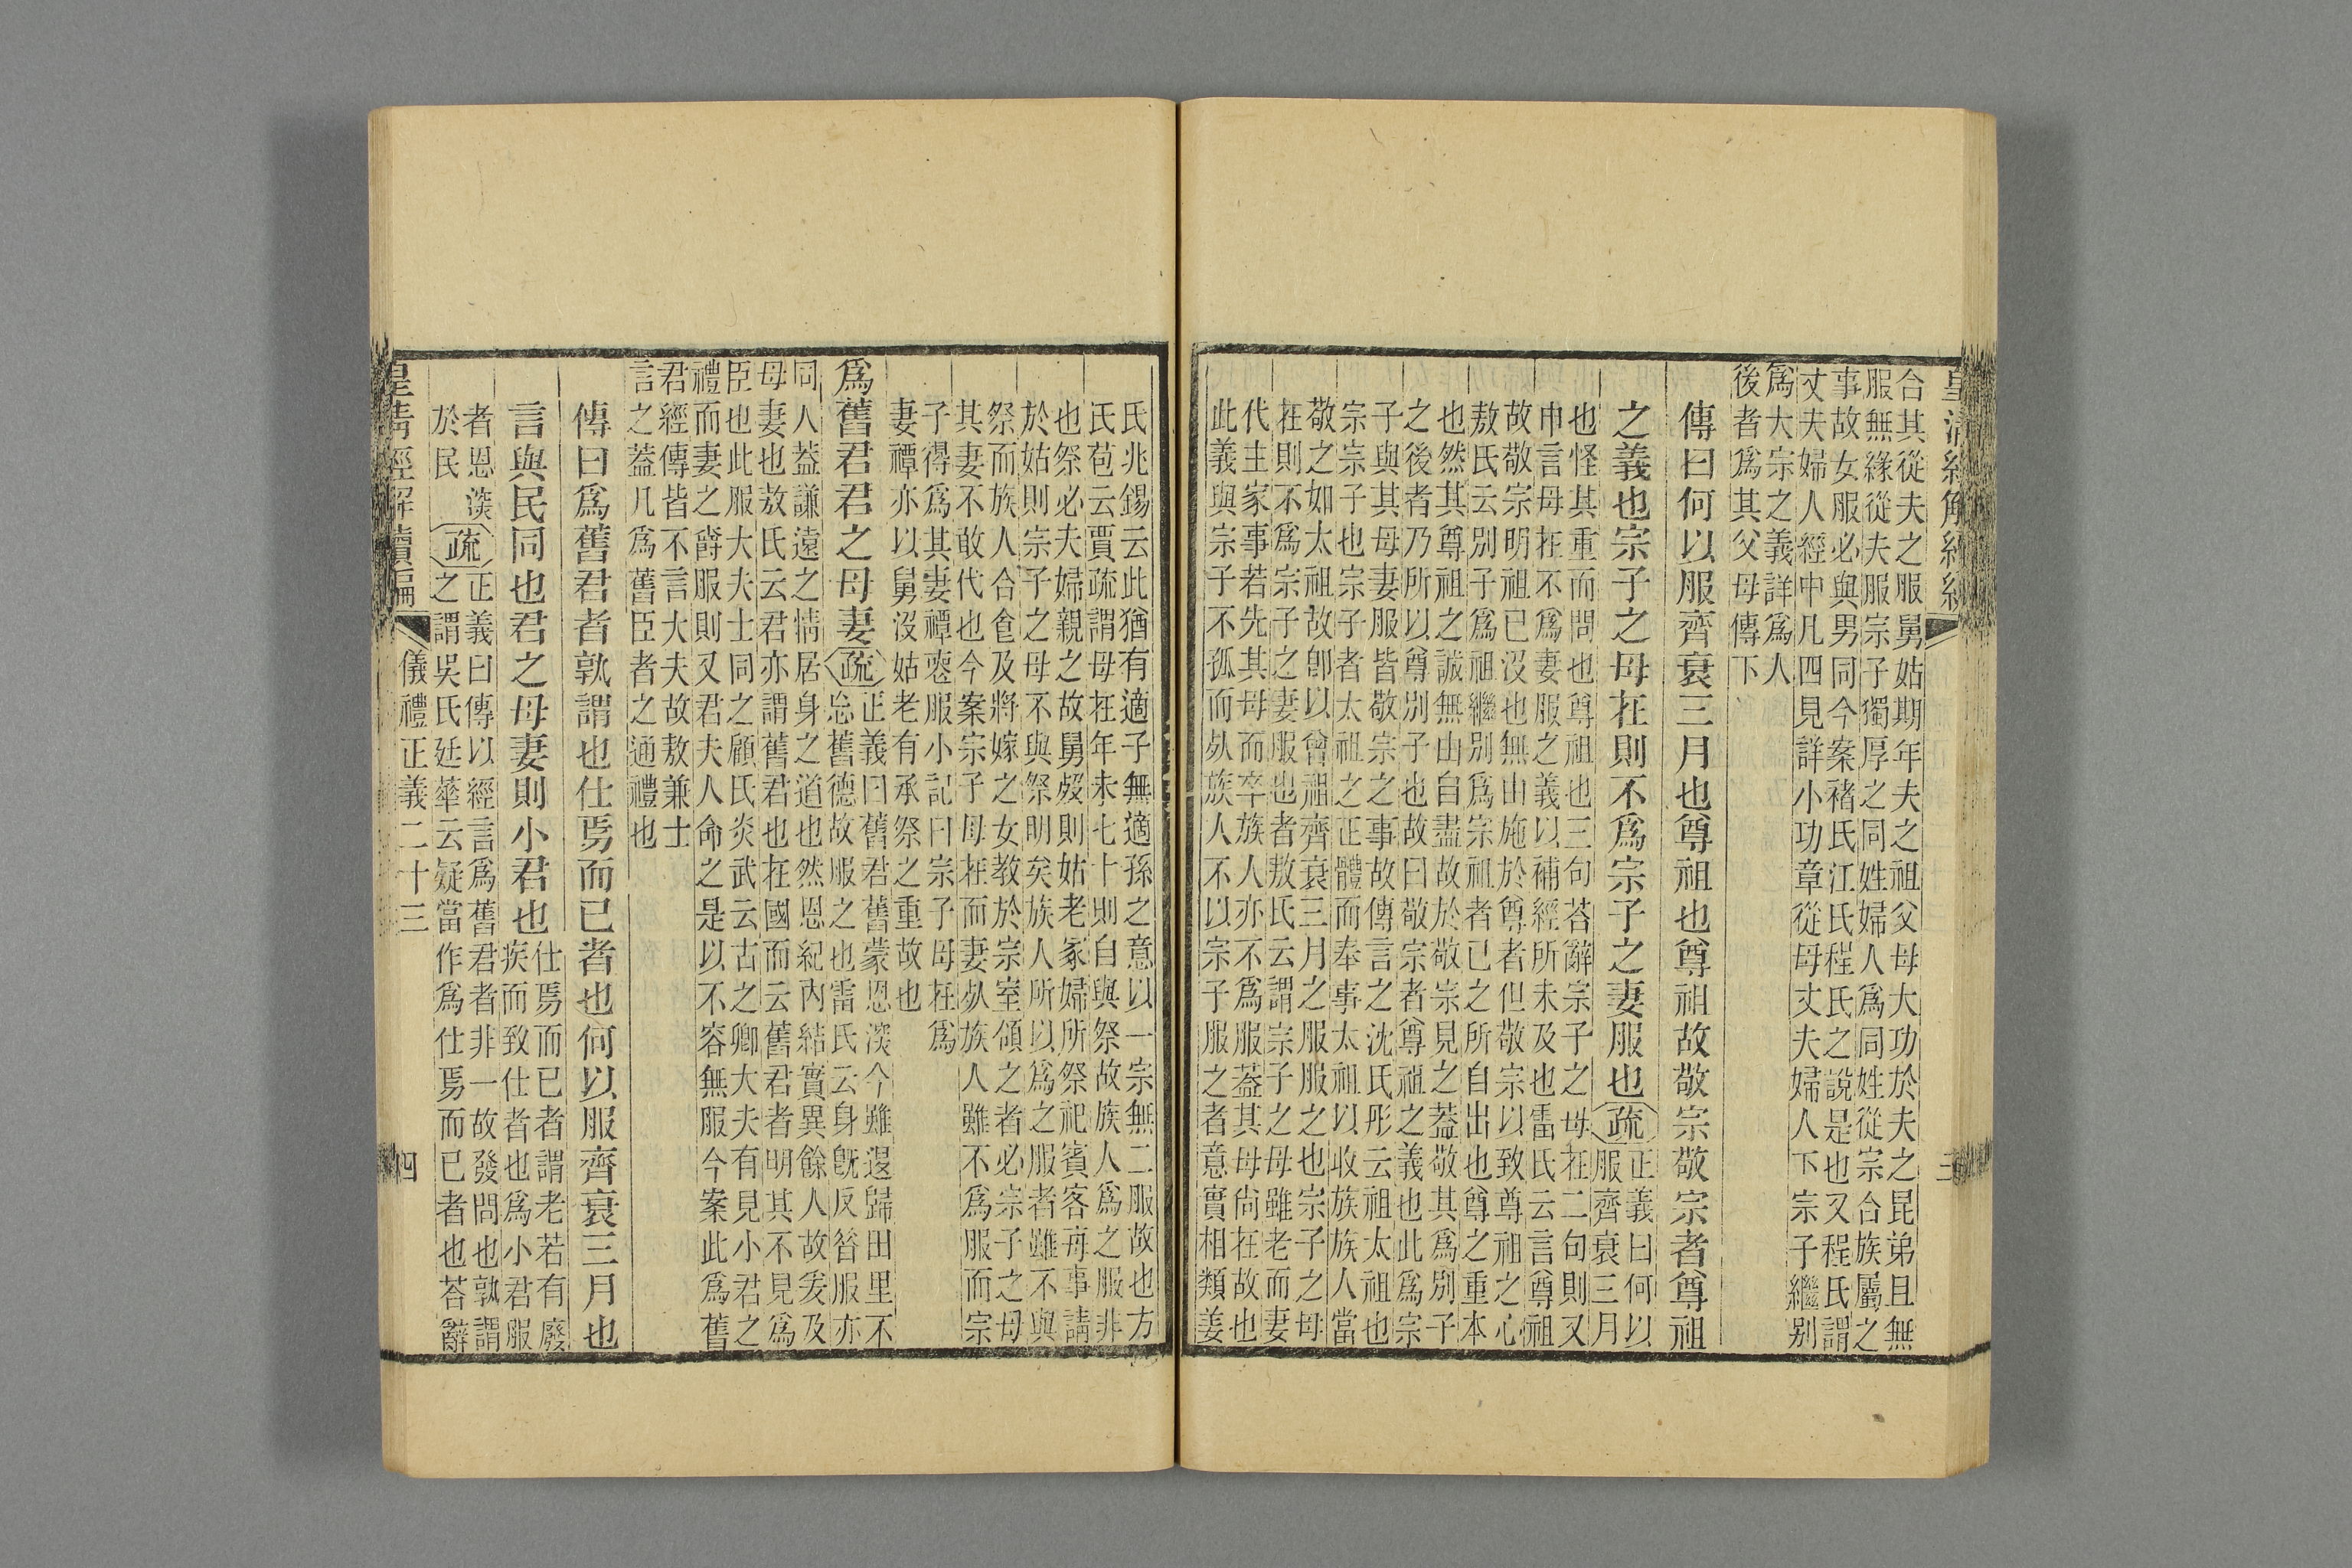 合其從夫之服舅姑期年夫之祖父母大功於夫之昆弟且無
服無緣從夫服宗子獨厚之同姓婦人爲同姓從宗合族屬之
事故女服必與男同今案褚氏江氏程氏之說是也又程氏謂
丈夫婦人經中凡四見詳小功章從母丈夫婦人下宗子繼别
爲大宗之義詳爲人
後者爲其父母傳下
傳曰何以服齊衰三月也尊祖也尊祖故敬宗敬宗者尊祖
之義也宗子之母在則不爲宗子之妻服也疏
正義曰何以
服齊衰三月
也怪其重而問也尊祖也三句荅辭宗子之母在二句則又
申言母在不爲妻服之義以補經所未及也雷氏云言尊祖
故敬宗明祖已沒也無由施於尊者但敬宗以致尊祖之心
敖氏云别子爲祖繼别爲宗祖者已之所自出也尊之重本
也然其尊祖之誠無由自盡故於敬宗見之蓋敬其爲别子
之後者乃所以尊别子也故曰敬宗者尊祖之義也此爲宗
子與其母妻服皆敬宗之事故傳言之沈氏彤云祖太祖也
宗宗子也宗子者太祖之正體而奉事太祖以收族族人當
敬之如太祖故卽以曾祖齊衰三月之服服之也宗子之母
在則不爲宗子之妻服也者敖氏云謂宗子之母雖老而妻
代主家事若先其母而卒族人亦不爲服蓋其母尚在故也
此義與宗子不孤而死族人不以宗子服之者意實相類姜
氏兆錫云此猶有適子無適孫之意以一宗無二服故也方
氏苞云賈疏謂母在年未七十則自與祭故族人爲之服非
也祭必夫婦親之故舅歿則姑老冢婦所祭祀賓客每事請
於姑則宗子之母不與祭明矣族人所以爲之服者雖不與
祭而族人合食及將嫁之女教於宗室領之者必宗子之母
其妻不敢代也今案宗子母在而妻死族人雖不爲服而宗
子得爲其妻禫喪服小記曰宗子母在爲
妻禫亦以舅沒姑老有承祭之重故也
爲舊君君之母妻疏
正義曰舊君舊蒙恩深今雖退歸田里不
忘舊德故服之也雷氏云身旣反昝服亦
同人蓋謙遠之情居身之道也然恩紀內結實異餘人故爰及
母妻也敖氏云君亦謂舊君也在國而云舊君者明其不見爲
臣也此服大夫士同之顧氏炎武云古之卿大夫有見小君之
禮而妻之爵服則又君夫人命之是以不容無服今案此爲舊
君經傳皆不言大夫故敖兼士
言之蓋凡爲舊臣者之通禮也
傳曰爲舊君者孰謂也仕焉而已者也何以服齊衰三月也
言與民同也君之母妻則小君也
仕焉而已者謂老若有廢
疾而致仕者也爲小君服
者恩深
於民疏
正義曰傳以經言爲舊君者非一故發問也孰謂
之謂吳氏廷華云疑當作爲仕焉而已者也荅辭
皇清經解續編
儀禮正義二十三
四